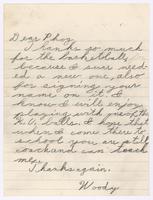 Dear Phog,
Thanks so much
for the basketball,
because I sure need-
ed a new one, also
for signing your
name on it. I
know I will enjoy
playing with
I hope that
when I come there to
school you are still
coach and can teach
me.
Thanks again.
Woody